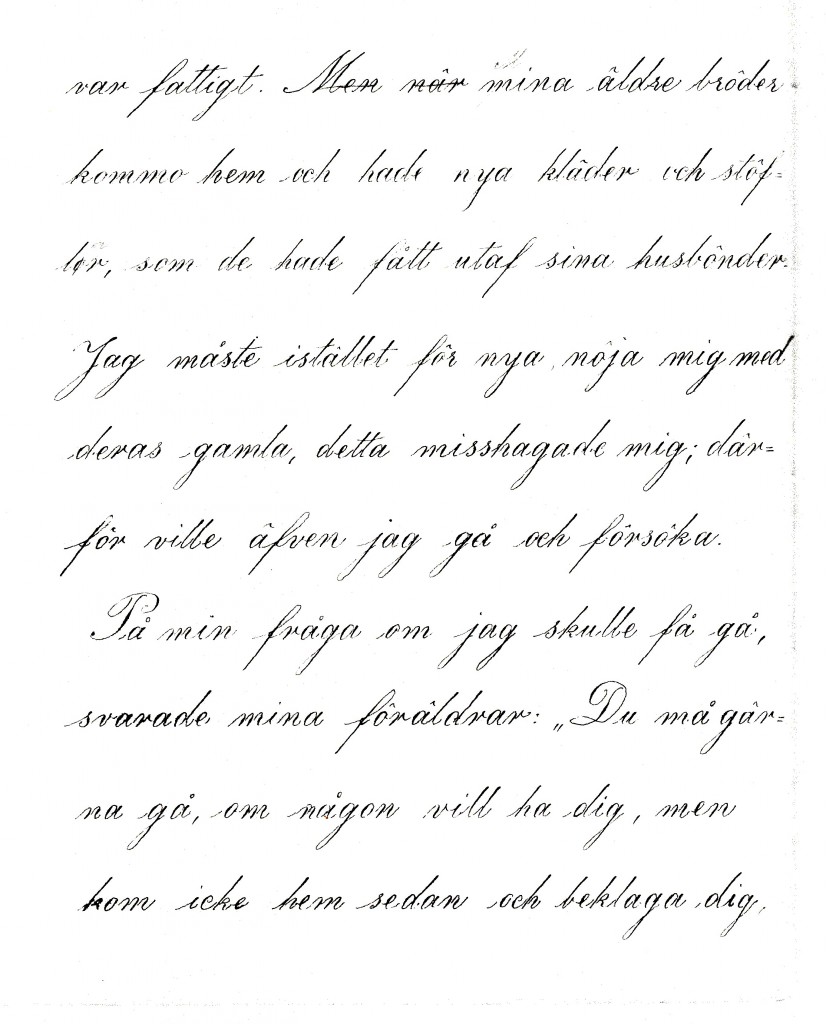 var fattigt. Men när mina äldre bröder
kommo hem och hade nya kläder och stöf-
lor, som de hade fått utaf sina husbönder.
Jag måste istället för nya, nöja mig med
deras gamla, detta misshagade mig; där-
för ville äfven jag gå och försöka.
På min fråga om jag skulle få gå,
svarade mina föräldrar: „Du må gär-
na gå, om någon vill ha dig, men
kom icke hem sedan och beklaga dig,